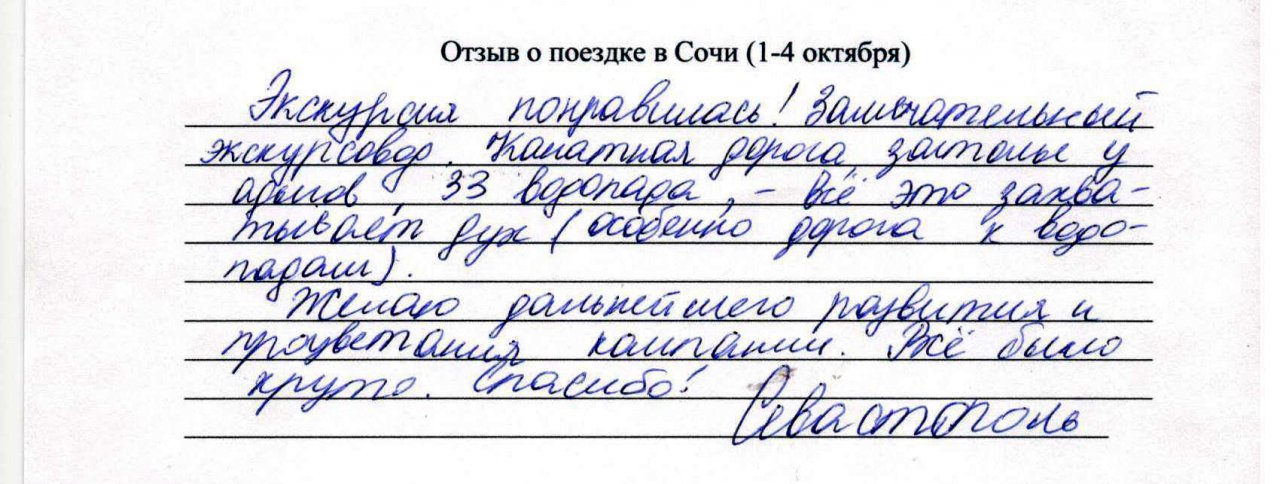 Отзыв о поездке в Сочи (1-4 октября)
Экскурсия понравилась! Замечательный
экскурсовод. Канатная дорога, застолье у
адыгов, 33 водопада, - всё это захва-
тывает дух (особенно дорога к водо-
падам).
Желаю дальнейшего развития и
процветания компании. Всё было
круто. Спасибо!
Севастополь